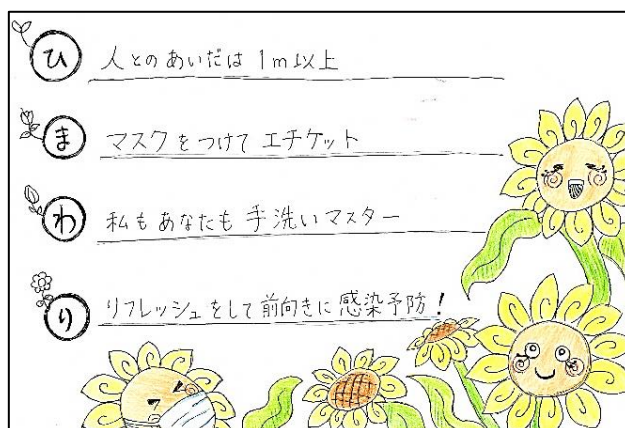 ひ 人とのあいだは 1m以上
ま マスクをつけて エチケット
わ 私もあなたも 手洗いマスター
り リフレッシュをして前向きに感染予防!